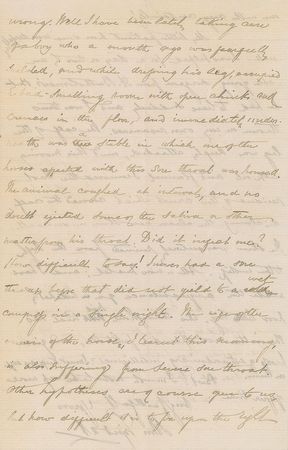 wrong. Well I have been lately taking care
a boy who a month ago was fearfully
and while dressing his leg, occupied
smelling room with open chinks and
crevices in the floor, and immediately under-
neath was a stable in which one of the
horses affected with this sore throat was housed.
The animal coughed at intervals, and no
doubt ejected some of the saliva or other
matter from his throat. Did it infect me?
How difficult to say. I never had a sore
throat before that did not yield to a wet
compress in a single night. The wife of the
owner of the horse, I learned this morning,
is also suffering from severe sore throat.
Other hypotheses are of course given to us,
but how difficult it is to fix upon the right